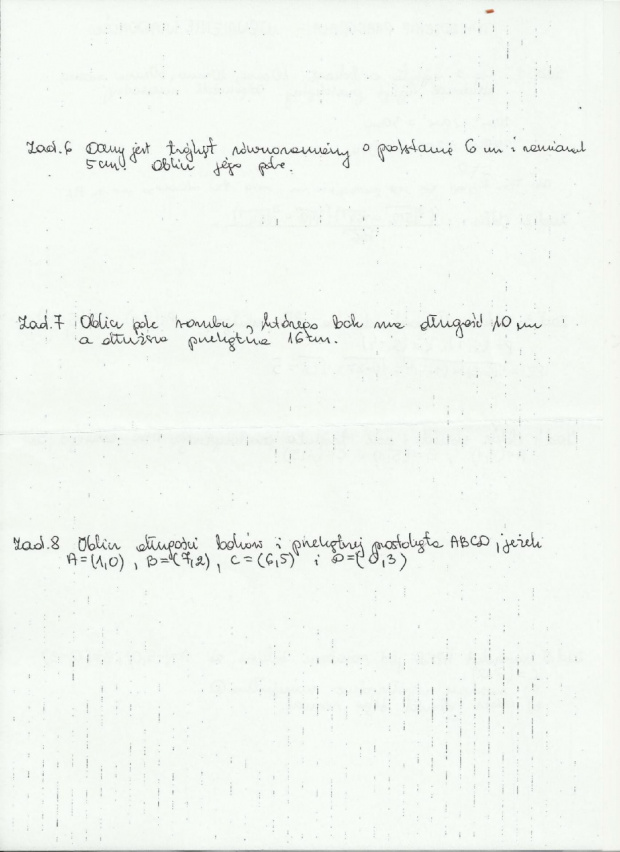 Zad.6 Dany jest trójkąt równoramienny o podstawie 6 cm i ramionach
5 cm. Oblicz jego pole.
Zad.7 Oblicz pole rombu, którego bok ma długość 10 cm
a dłuższa przekątna 16 cm.
Zad.8 Oblicz długości boków i przekątnej prostokąta ABCD, jeżeli
A=(1,0), B=(7,2), C=(6,5) i D=(0,3)